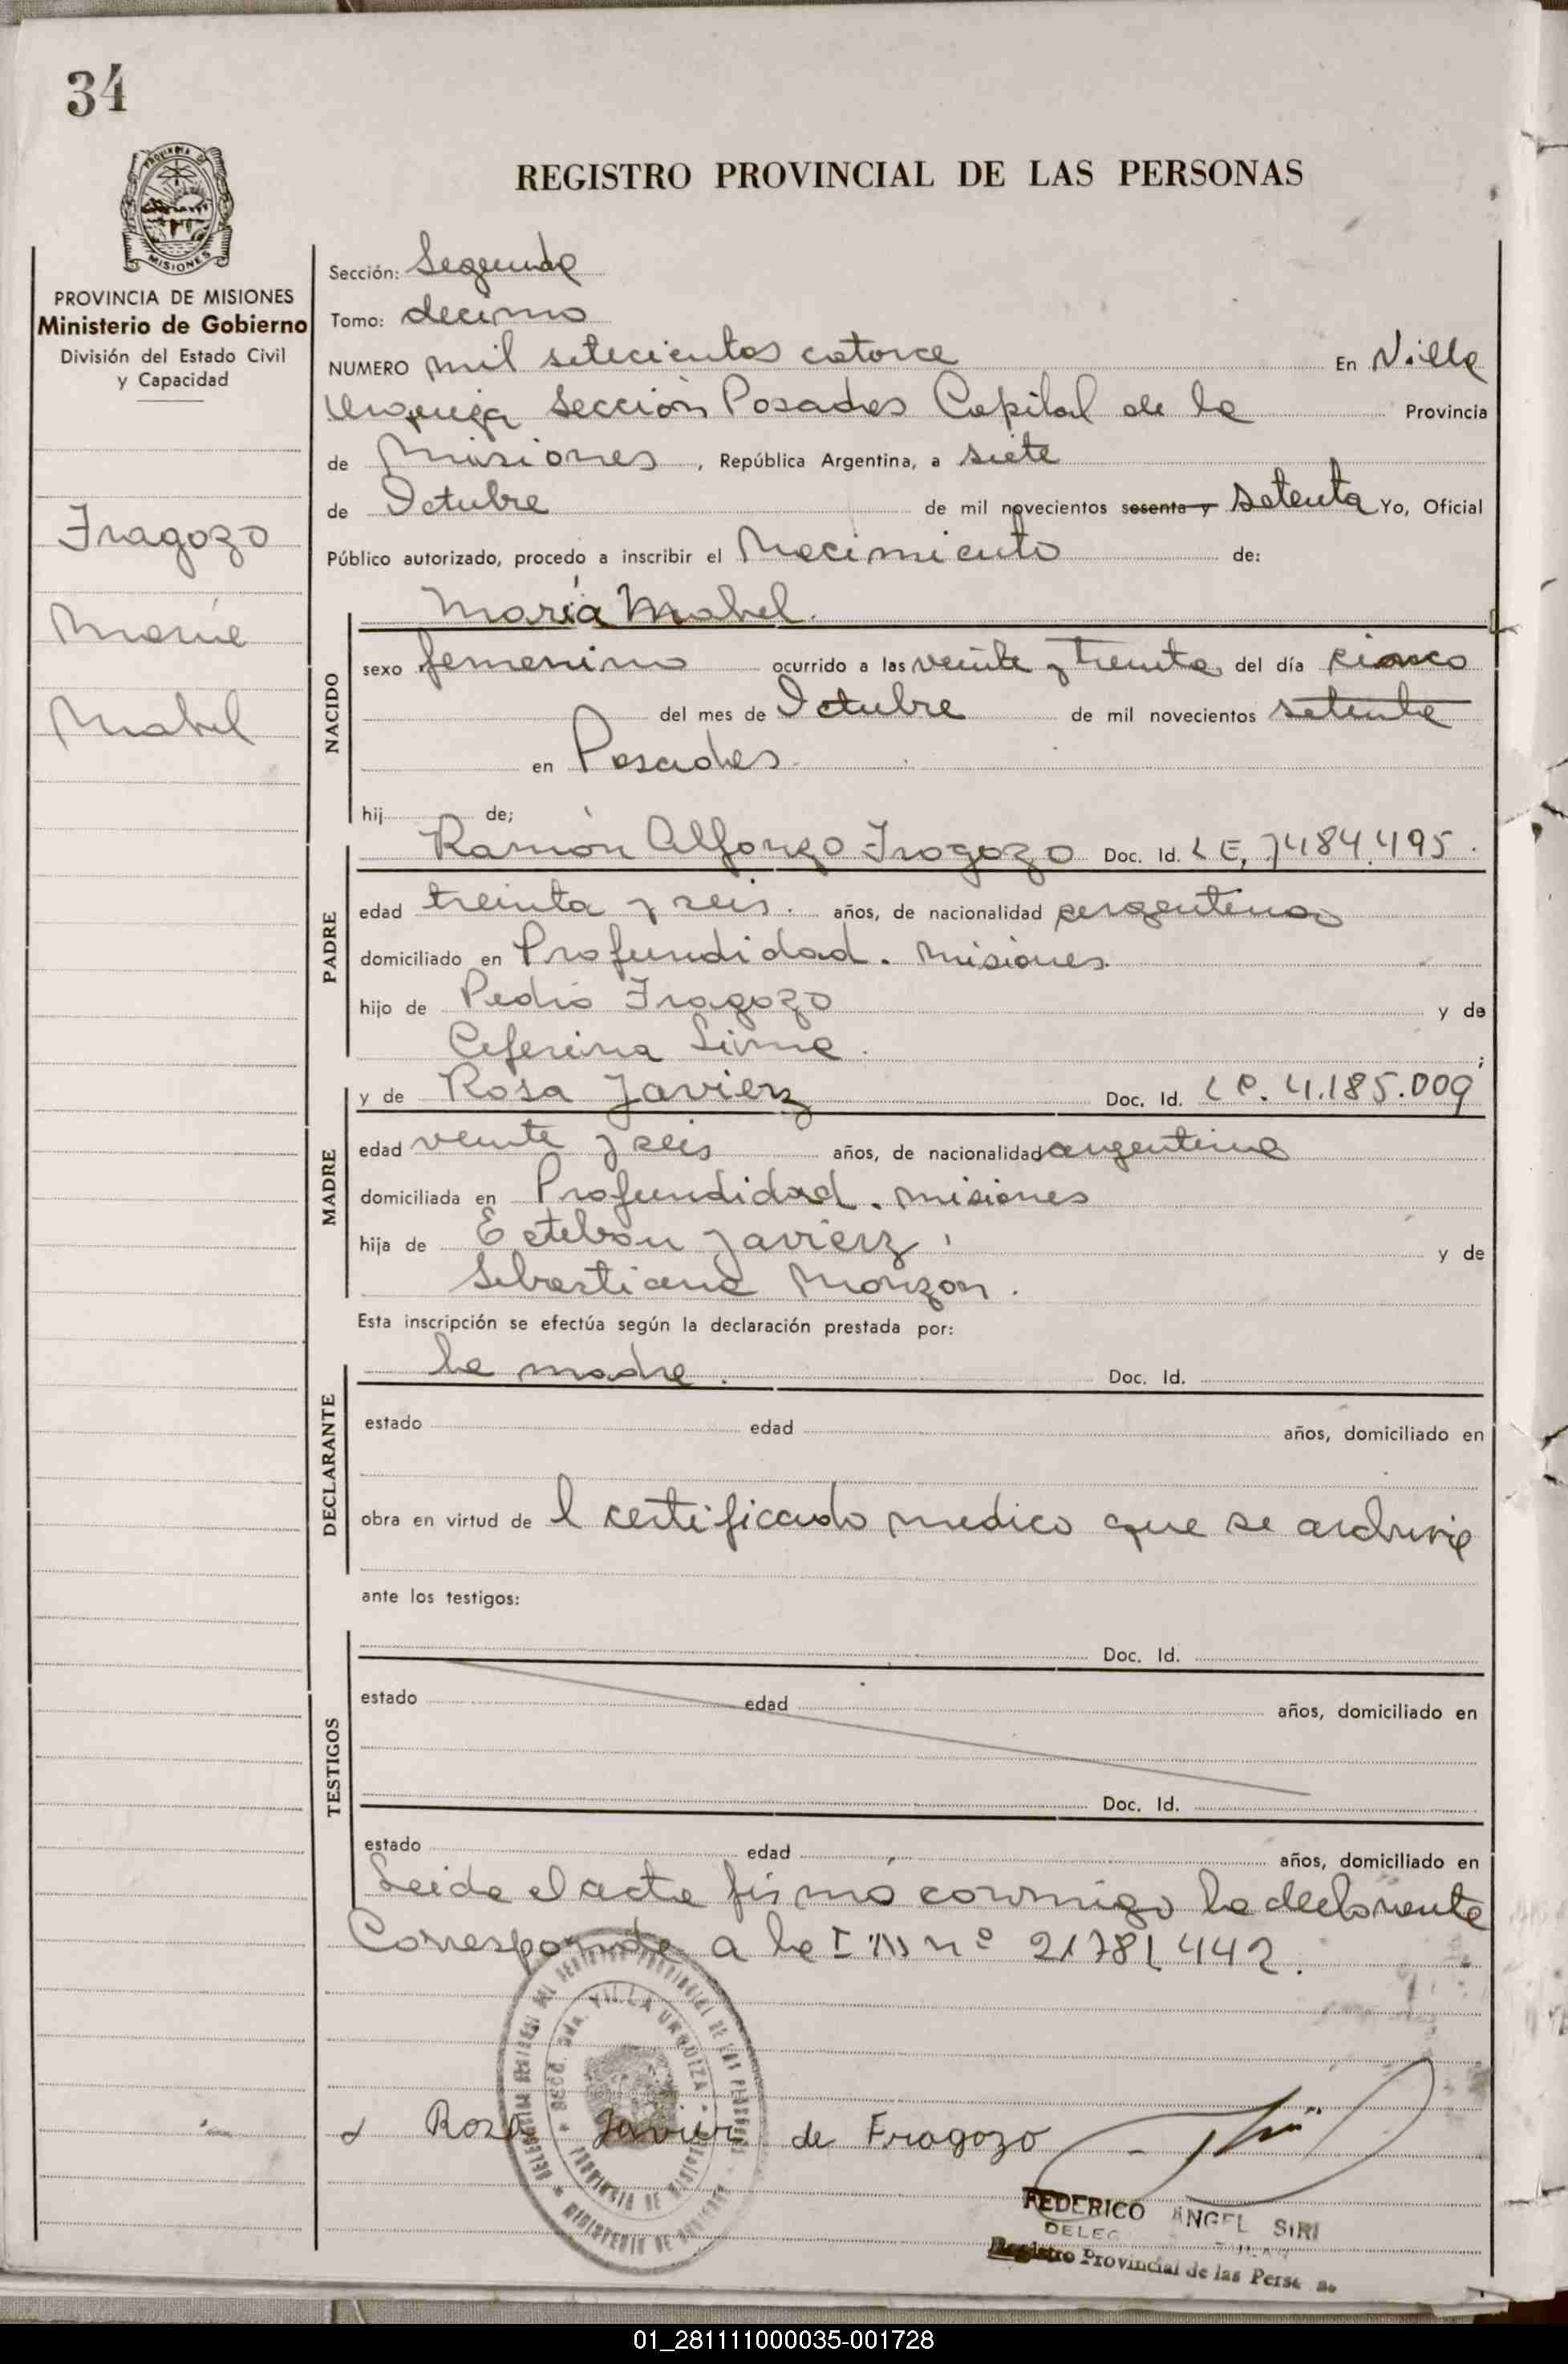 34
PROVINCIA DE
MISIONES
PROVINCIA DE MISIONES
Ministerio de Gobierno
División del Estado Civil
y Capacidad
Fragozo
María
Mabel
REGISTRO PROVINCIAL DE LAS PERSONAS
Sección: Segunda
Tomo: decimo
NUMERO mil setecientos catorce En Villa
Urquiza Sección Posadas Capital de la Provincia
de Misiones, República Argentina, a siete
de Octubre de mil novecientos sesenta y setenta Yo, Oficial
Público autorizado, procedo a inscribir el Nacimiento de:
María Mabel.
NACIDO
sexo femenino ocurrido a las veinte y treinta del día cinco
del mes de Octubre de mil novecientos setenta
en Posadas.
hij de;
PADRE
Ramón Alfonzo Fragozo Doc. Id. L E, 7484.495.
edad treinta y seis. años, de nacionalidad argentino
domiciliado en Profundidad. Misiones.
hijo de Pedro Fragozo y de
Ceferina .
MADRE
y de Rosa Javierz Doc. Id. L C. 4.185.009
edad veinte y seis años, de nacionalidad argentina
domiciliada en Profundidad. Misiones
hija de Esteban Javierz y de
Sebastiana Monzon.
Esta inscripción se efectúa según la declaración prestada por:
DECLARANTE
la madre. Doc. Id.
estado edad años, domiciliado en
obra en virtud de l certificado medico que se archiva
ante los testigos:
TESTIGOS
Doc. Id.
estado edad años, domiciliado en
Doc. Id.
estado edad años, domiciliado en
Leida el acta firmó conmigo la declarante
Corresponde a la nº 21781442.
VILLA URQUIZA
PROVINCIA DE MISIONES
MINISTERIO DE GOBIERNO
Rosa Javierz de Fragozo
FEDERICO ANGEL SIRI
DELEG
Registro Provincial de las Pers
01_281111000035-001728